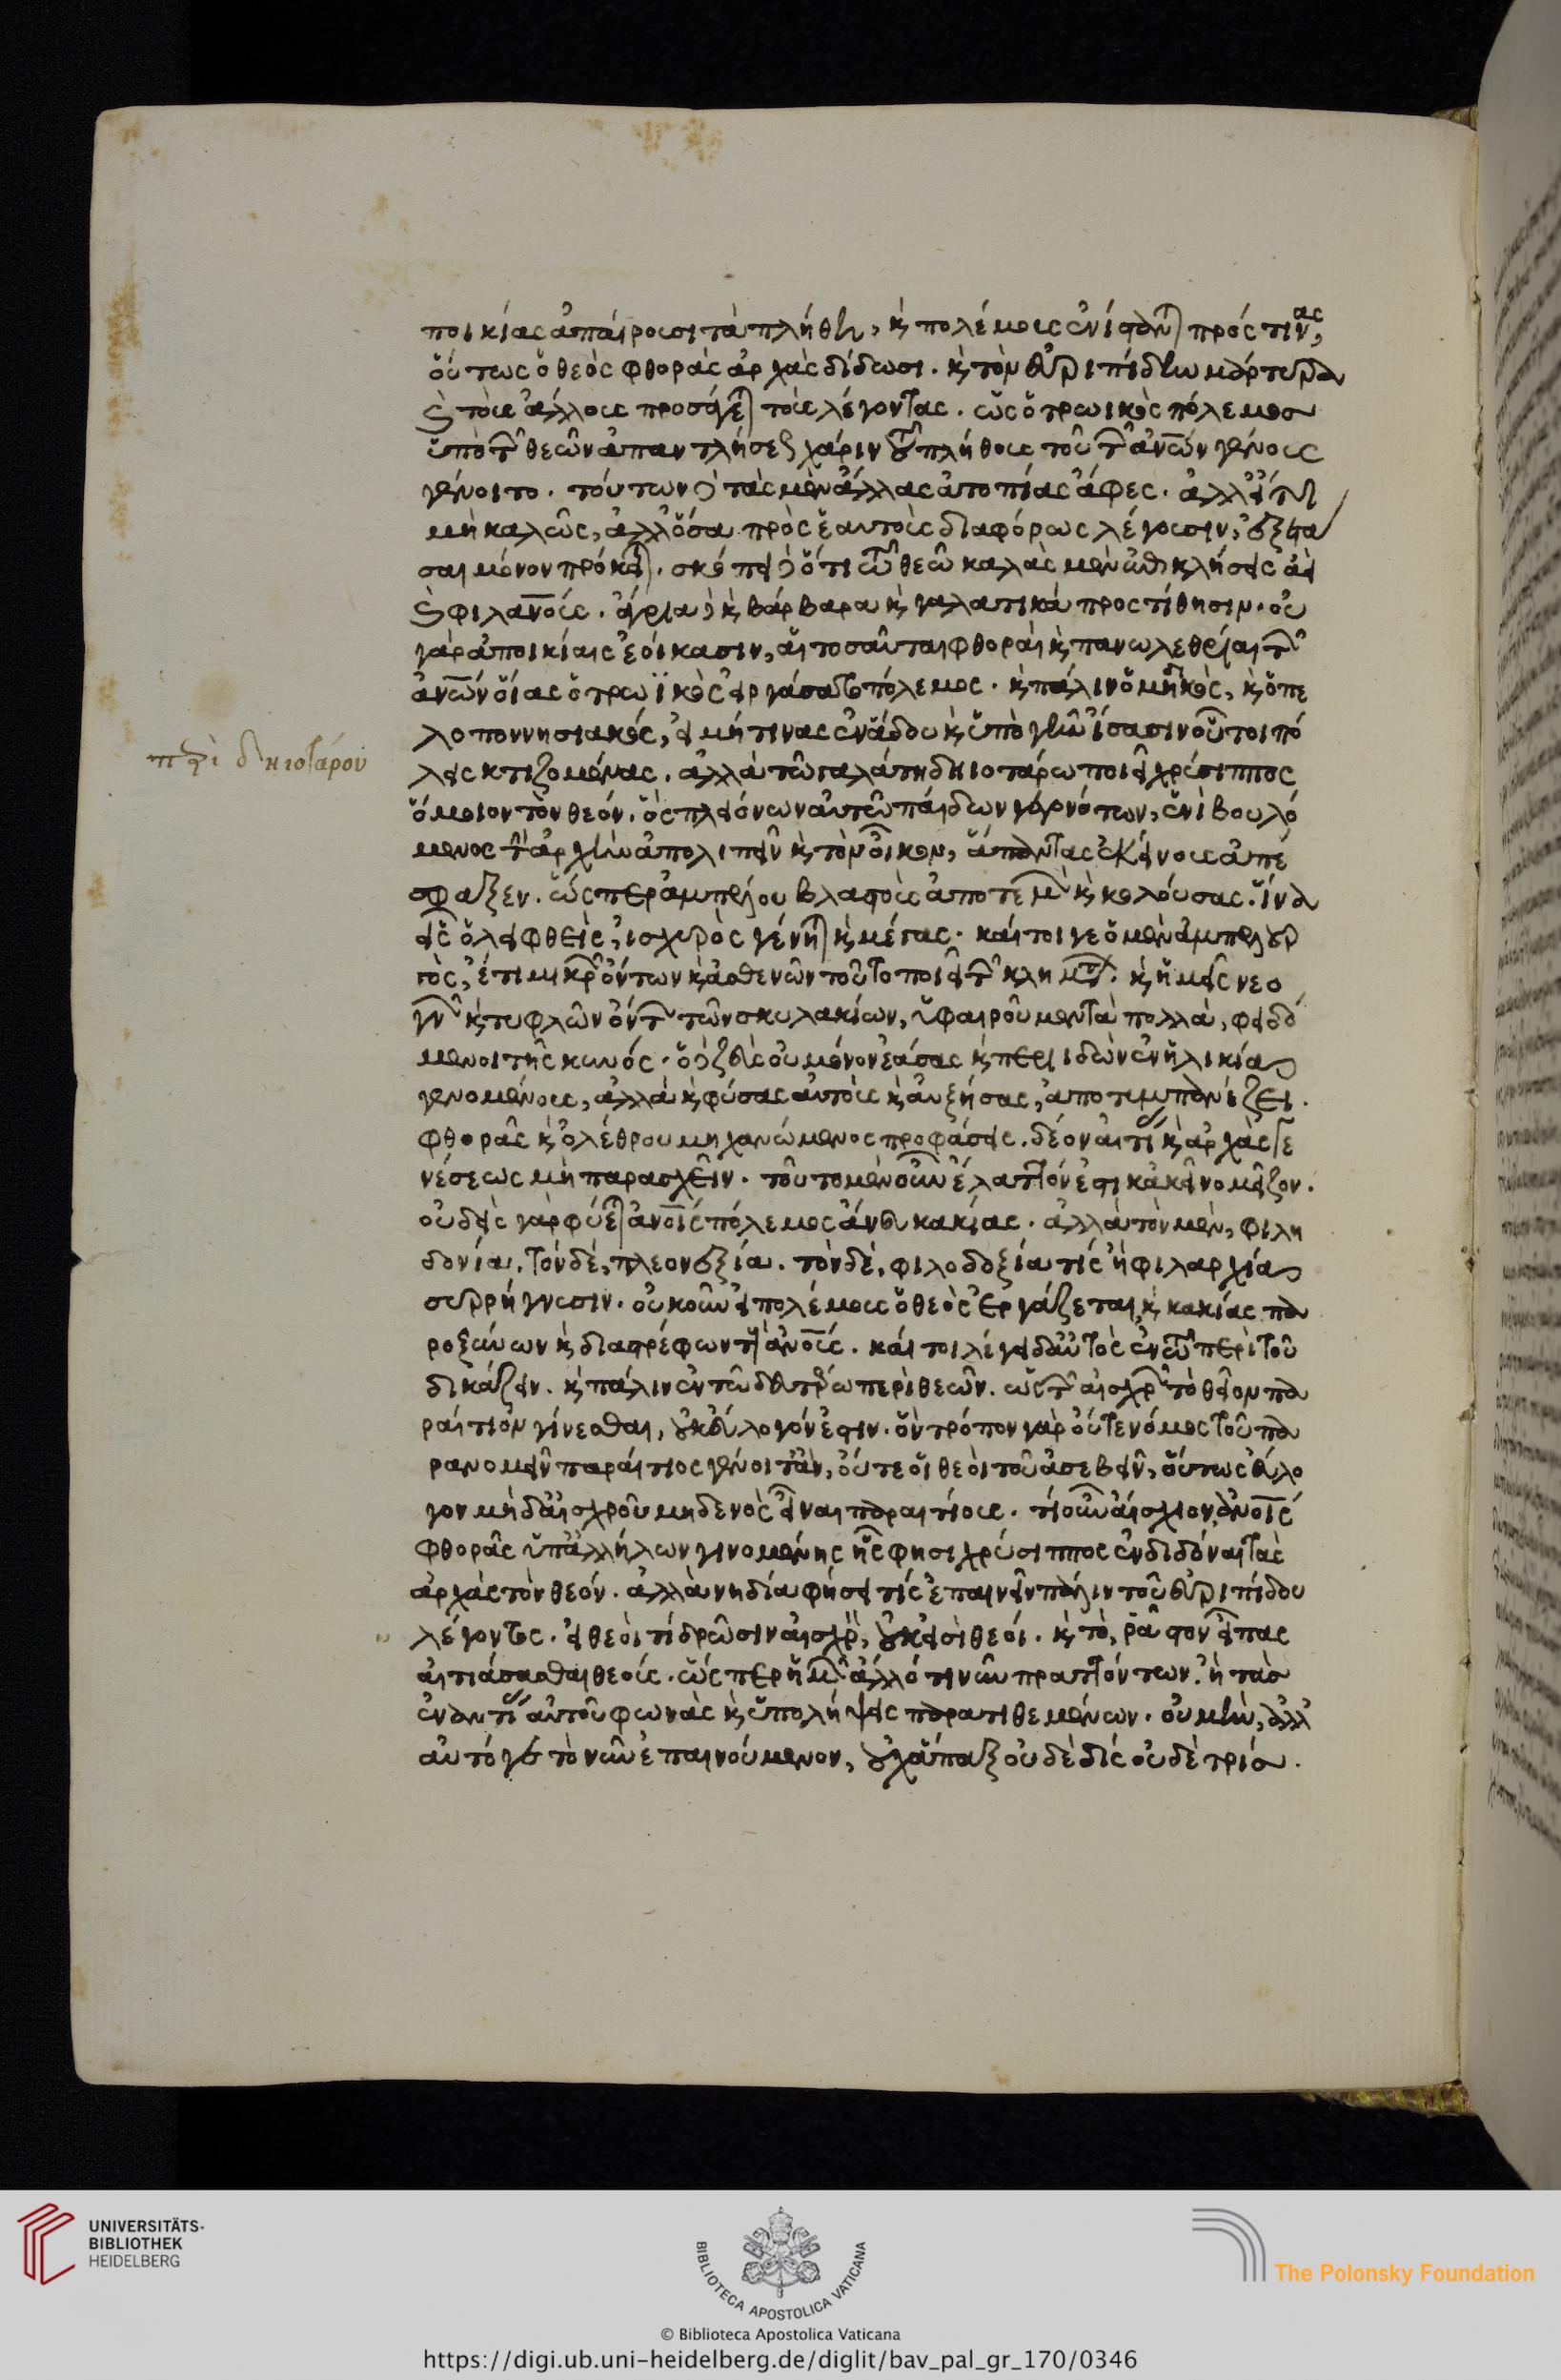 ποικίας ἀπαίρουσι τὰ πλήθη, κ̀ πολέμους ἐνίσταντ(αι) πρός τινας,
οὕτως ὁ θεὸς φθορᾶς ἀρχὰς δίδωσι. κ̀ τὸν εὐριπίδην μάρτυρα
κ̀ τοὺς ἄλλους προσάγε(ται) τοὺς λέγοντας. ὡς ὁ τρωικὸς πόλεμος
ὑπὸ τ̑ θεῶν ἀπαντλήσεως χάριν τοῦ πλήθους τοῦ τ̑ ἀνων γένους
γένοιτο. τούτων δὲ τὰς μὲν ἄλλας ἀτοπίας ἄφες. ἀλλ' εἴ τι
μὴ καλῶς, ἀλλ' ὅσα πρὸς ἑαυτοὺς διαφόρως λέγουσιν, ἐξετά
σαι μόνον πρόκει(ται). σκόπει δὲ ὅτι τῶ θεῶ καλὰς μὲν ἐπικλήσεις ἀεὶ
κ̀ φιλανους. ἄγρια δὲ κ̀ βάρβαρα κ̀ γαλατικὰ προστίθησιν. οὐ
γὰρ ἀποικίαις ἐοίκασιν, αἱ τοσαῦται φθοραὶ κ̀ πανωλεθρίαι τ̑
ἀνων οἵας ὁ τρωϊκὸς εἰργάσατο πόλεμος. κ̀ πάλιν ὁ μηδικὸς, κ̀ ὁ πε
λοποννησιακός, εἰ μή τινας ἐν ἅδου κ̀ ὑπὸ γῆν ἴσασιν οὗτοι πό
λεις κτιζομένας. ἀλλὰ τῶ γαλάτη δηιοτάρω ποιεῖ χρύσιππος
περὶ δηιοτάρου
ὅμοιον τὸν θεόν. ὃς πλειόνων αὐτῶ παίδων γεγονότων, ἑνὶ βουλό
μενος τὴν ἀρχὴν ἀπολιπεῖν κ̀ τὸν οἶκον, ἅπαντας ἐκείνους ἀπέ
σφαξεν. ὥσπερ ἀμπέλου βλαστοὺς ἀποτεμὼν κ̀ κολούσας. ἵνα
εἷς ὁ λειφθεὶς, ἰσχυρὸς γένη(ται) κ̀ μέγας. καίτοι γε ὁ μὲν ἀμπελουρ
γὸς, ἔτι μικρῶν ὄντων κ̀ ἀσθενῶν τοῦτο ποιεῖ τ̑ κλημάτων. κ̀ ἡμεῖς νεο
γνῶν κ̀ τυφλῶν ὄντων τῶν σκυλακίων, ὑφαιροῦμεν τὰ πολλὰ, φειδό
μενοι τῆς κυνός. ὁ δὲ ζεὺς οὐ μόνον ἐάσας κ̀ περιιδὼν ἐν ἡλικία
γενομένους, ἀλλὰ κ̀ φύσας αὐτοὺς κ̀ αὐξήσας, ἀποτυμπανίζει.
φθορᾶς κ̀ ὀλέθρου μηχανώμενος προφάσεις. δέον αἰτίας κ̀ ἀρχὰς γε
νέσεως μὴ παρασχεῖν. τοῦτο μὲν οὖν ἔλαττόν ἐστι κἀκεῖνο μεῖζον.
οὐδεὶς γὰρ φύε(ται) ἀνοις πόλεμος ἄνευ κακίας. ἀλλὰ τὸν μὲν, φιλη
δονία, τὸν δὲ, πλεονεξία. τὸν δὲ, φιλοδοξία τὶς ἢ φιλαρχία
συρρήγνυσιν. οὐκοῦν εἰ πολέμους ὁ θεὸς ἐργάζεται, κ̀ κακίας πα
ροξύνων κ̀ διαστρέφων τοὺς ἀνους. καίτοι λέγει δ' αὐτὸς ἐν τῶ περὶ τοῦ
δικάζειν. κ̀ πάλιν ἐν τῶ δευτέρω περὶ θεῶν. ὡς τ̑ αἰσχρῶν τὸ θεῖον πα
ραίτιον γίνεσθαι, οὐκ εὔλογόν ἐστιν. ὃν τρόπον γὰρ οὔτε νόμος τοῦ πα
ρανομεῖν παραίτιος γένοιτ' ἂν, οὔτε οἱ θεοὶ τοῦ ἀσεβεῖν, οὕτως εὔλο
γον μηδ' αἰσχροῦ μηδενὸς εἶναι παραιτίους. τί οὖν αἴσχιον ἀνοις
φθορᾶς ὑπ' ἀλλήλων γινομένης ἧς φησι χρύσιππος ἐνδιδόναι τὰς
ἀρχὰς τὸν θεόν. ἀλλὰ νὴ δία φήσει τίς ἐπαινεῖν πάλιν τοῦ εὐριπίδου
λέγοντος. εἰ θεοὶ τὶ δρῶσιν αἰσχρὸν, οὐκ εἰσὶ θεοί. κ̀ τὸ, ρᾶστον εἶπας
αἰτιάσασθαι θεούς. ὥσπερ ἡμῶν ἄλλό τι νῦν πραττόντων. ἢ τὰς
ἐναντίας αὐτοῦ φωνὰς κ̀ ὑπολήψεις παρατιθεμένων. οὐ μὴν, ἀλλ'
αὐτό γε τὸ νῦν ἐπαινούμενον, οὐχ' ἅπαξ οὐδὲ δὶς οὐδὲ τρὶς.
UNIVERSITÄTS-
BIBLIOTHEK
HEIDELBERG
BIBLIOTECA APOSTOLICA VATICANA
The Polonsky Foundation
© Biblioteca Apostolica Vaticana
https://digi.ub.uni-heidelberg.de/diglit/bav_pal_gr_170/0346